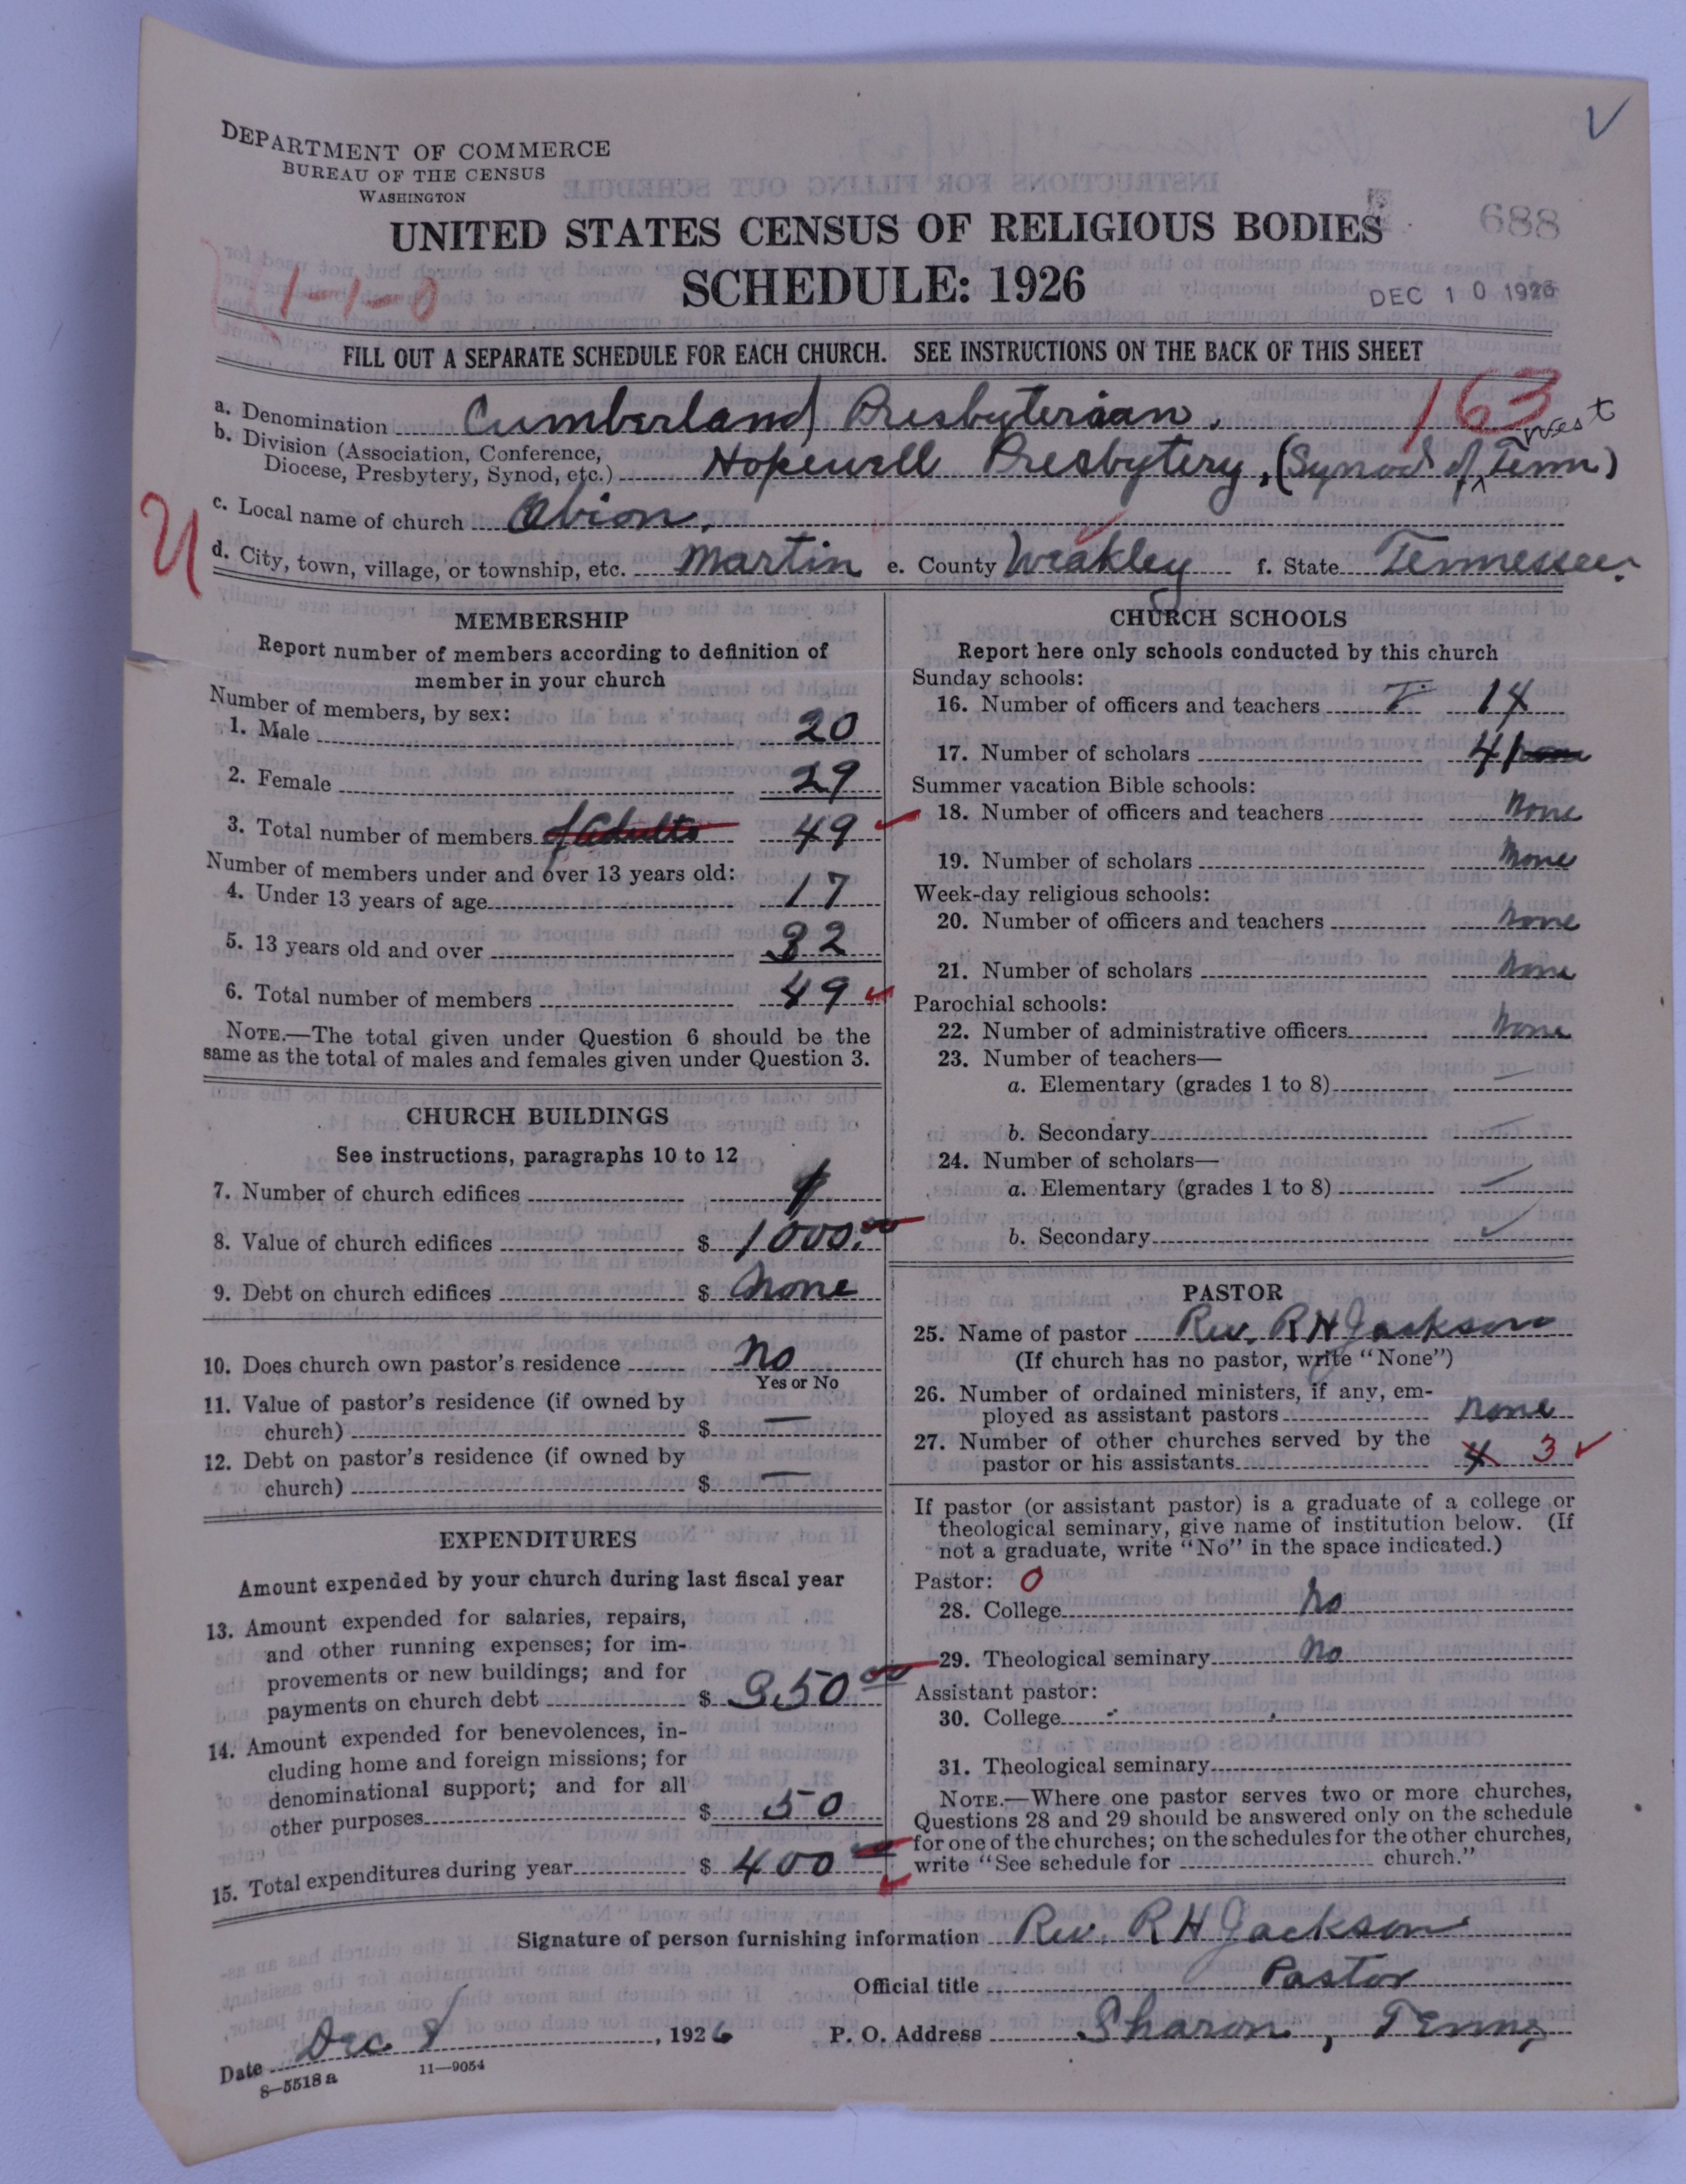 DEPARTMENT OF COMMERCE
BUREAU OF THE CENSUS
WASHINGTON
UNITED STATES CENSUS OF RELIGIOUS BODIES
688
SCHEDULE: 1926
DEC 10 1926
1-1-0
FILL OUT A SEPARATE SCHEDULE FOR EACH CHURCH. SEE INSTRUCTIONS ON THE BACK OF THIS SHEET
163
a. Denomination Cumberland Presbyterian.
b. Division (Association, Conference, Diocese, Presbytery, Synod, etc.) Hopewell Presbytery, (Synod of West Tenn)
c. Local name of church Obion.
d. City, town, village, or township, etc. Martin e. County Weakley f. State Tennessee.
MEMBERSHIP
Report number of members according to definition of
member in your church
Number of members, by sex:
1. Male 20
2. Female 29
3. Total number of members of Adults 49
Number of members under and over 13 years old:
4. Under 13 years of age 17
5. 13 years old and over 32
6. Total number of members 49
NOTE.—The total given under Question 6 should be the
same as the total of males and females given under Question 3.
CHURCH BUILDINGS
See instructions, paragraphs 10 to 12
7. Number of church edifices 1
8. Value of church edifices $ 1000.00
9. Debt on church edifices $ None
10. Does church own pastor's residence No
Yes or No
11. Value of pastor's residence (if owned by
church) $ —
12. Debt on pastor's residence (if owned by
church) $ —
EXPENDITURES
Amount expended by your church during last fiscal year
13. Amount expended for salaries, repairs,
and other running expenses; for im-
provements or new buildings; and for
payments on church debt $ 350 00
14. Amount expended for benevolences, in-
cluding home and foreign missions; for
denominational support; and for all
other purposes $ 50
15. Total expenditures during year $ 400
CHURCH SCHOOLS
Report here only schools conducted by this church
Sunday schools:
16. Number of officers and teachers 14
17. Number of scholars 41
Summer vacation Bible schools:
18. Number of officers and teachers None
19. Number of scholars None
Week-day religious schools:
20. Number of officers and teachers None
21. Number of scholars None
Parochial schools:
22. Number of administrative officers None
23. Number of teachers—
a. Elementary (grades 1 to 8) —
b. Secondary —
24. Number of scholars—
a. Elementary (grades 1 to 8) —
b. Secondary
PASTOR
25. Name of pastor Rev. R H Jackson
(If church has no pastor, write "None")
26. Number of ordained ministers, if any, em-
ployed as assistant pastors None
27. Number of other churches served by the
pastor or his assistants 4 3
If pastor (or assistant pastor) is a graduate of a college or
theological seminary, give name of institution below. (If
not a graduate, write "No" in the space indicated.)
Pastor: 0
28. College No
29. Theological seminary No
Assistant pastor:
30. College
31. Theological seminary
NOTE.—Where one pastor serves two or more churches,
Questions 28 and 29 should be answered only on the schedule
for one of the churches; on the schedules for the other churches,
write "See schedule for church."
Signature of person furnishing information Rev. R H Jackson
Official title Pastor
Date Dec 8, 1926 P. O. Address Sharon, Tenn,
8—5518a 11—9054